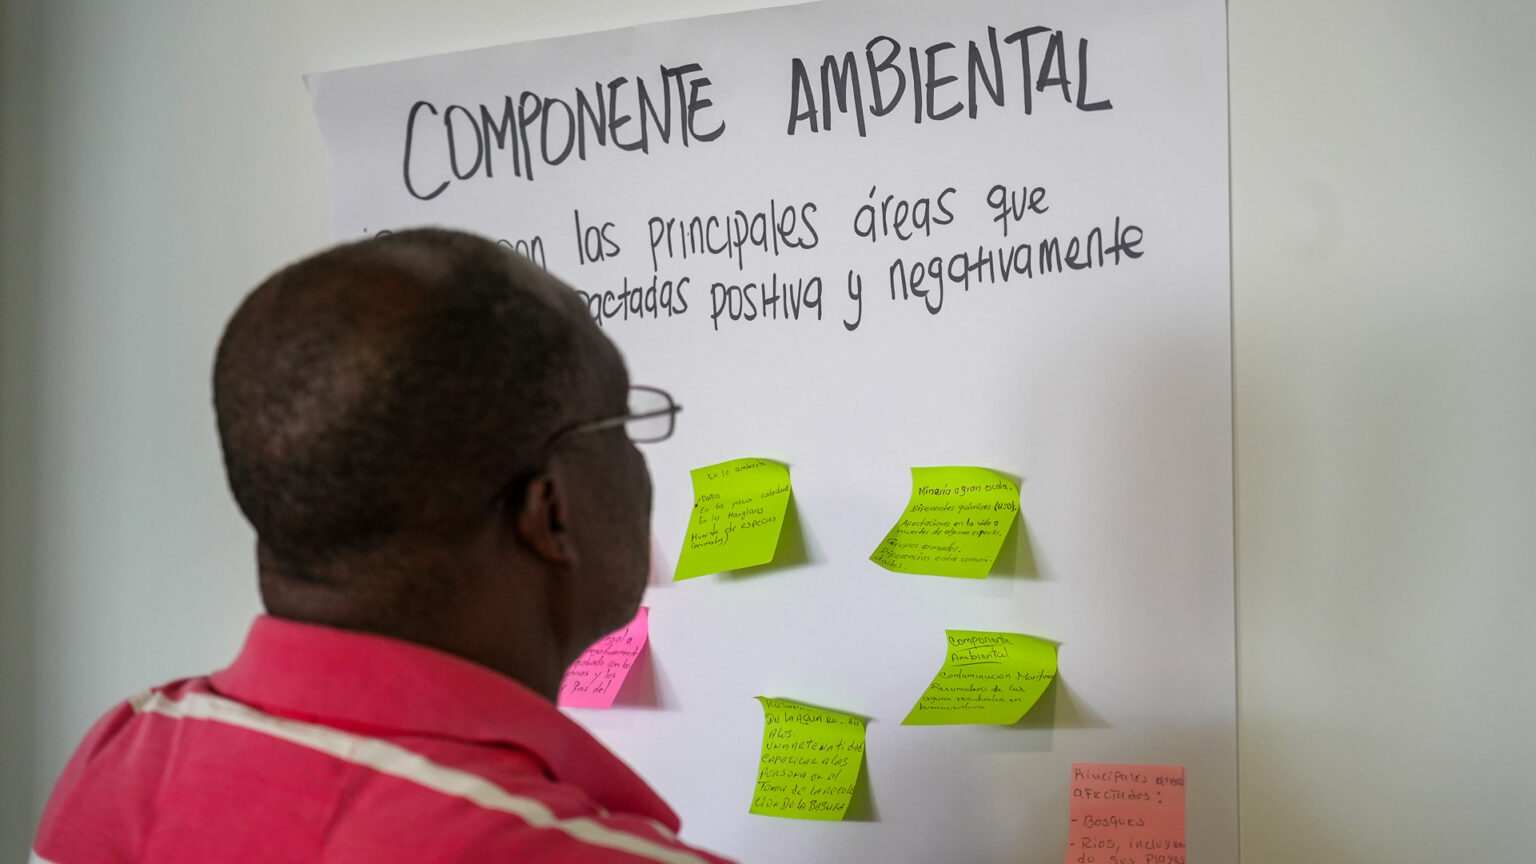 COMPONENTE AMBIENTAL
las principales áreas que
positiva y negativamente
En lo ambiente
Daños
En la pesca
En los Manglares
Muerte de especies
(animales)
Minería a gran escala.
Diferentes químicos (USO).
Afectaciones en la vida o
muertes de algunas especies.
Grupos armados.
Diferencias entre comuni-
dades.
Componente
Ambiental
Contaminacion
aguas residuales en
buenaventura
DE LA AGUA
PERSONA EN El
TEMA DE LA
CIÓN DE LA BASURA
y los
Rios del
Principales areas
afectadas:
- Bosques
- Rios, incluyen
do sus Playas